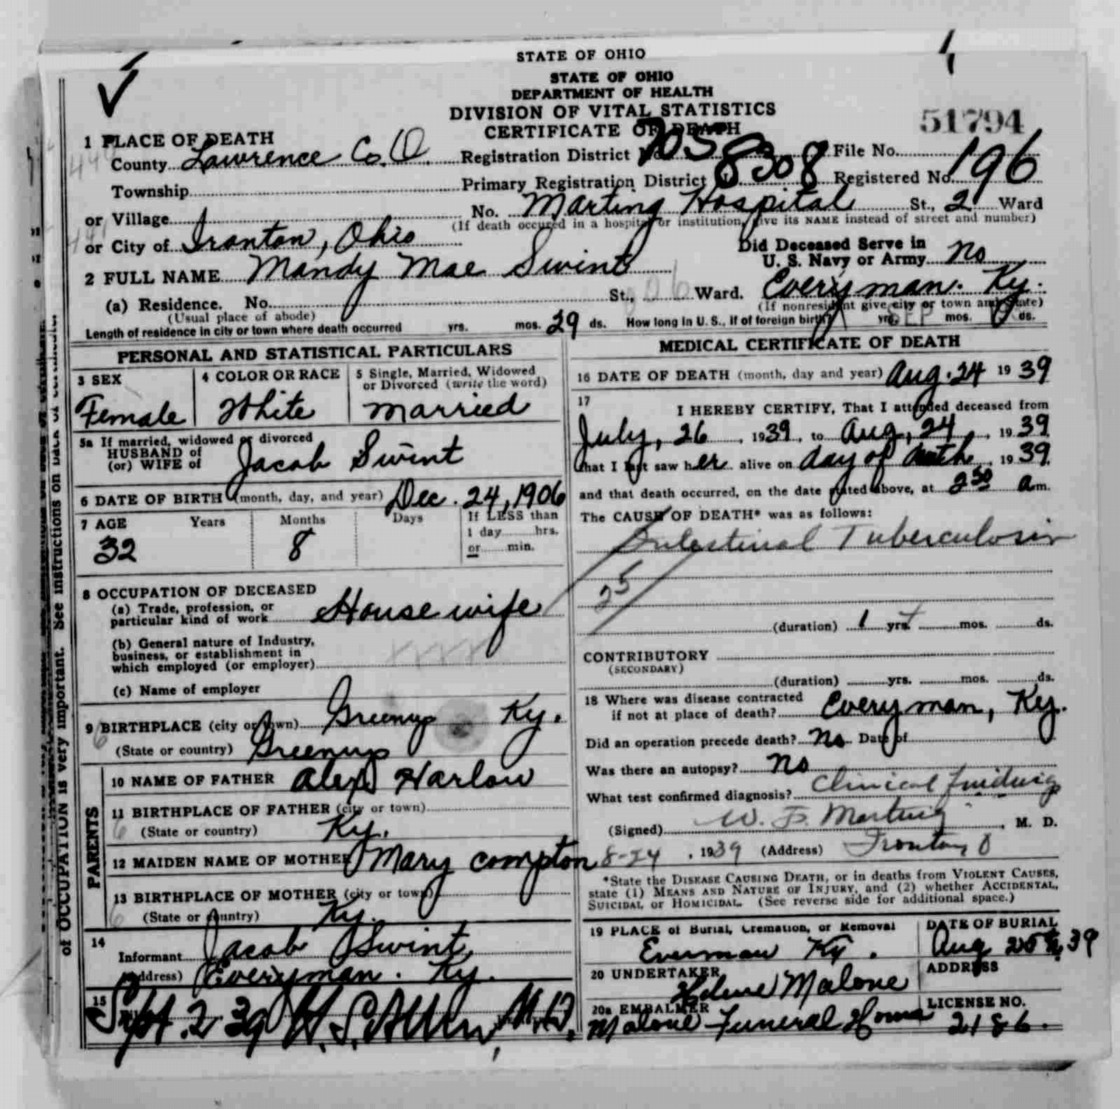 STATE OF OHIO
STATE OF OHIO
DEPARTMENT OF HEALTH
DIVISION OF VITAL STATISTICS
CERTIFICATE OF DEATH
51794
1 PLACE OF DEATH
County Lawrence Co. O. Registration District No. 705 File No.
Township Primary Registration District 8308 Registered No. 196
or Village No. Marting Hospital St., 2 Ward
(If death occured in a hospital or institution, give its NAME instead of street and number)
or City of Ironton, Ohio
Did Deceased Serve in
U. S. Navy or Army no
2 FULL NAME Mandy Mae Swint
(a) Residence. No. St., Ward. Everyman. Ky.
(Usual place of abode) (If nonresident give city or town and State)
Length of residence in city or town where death occurred yrs. mos. 29 ds. How long in U. S., if of foreign birth? yrs. mos. ds.
SEP
PERSONAL AND STATISTICAL PARTICULARS
3 SEX 4 COLOR OR RACE 5 Single, Married, Widowed
or Divorced (write the word)
Female White married
5a If married, widowed or divorced
HUSBAND of
(or) WIFE of Jacob Swint
6 DATE OF BIRTH (month, day, and year) Dec. 24, 1906
7 AGE Years Months Days If LESS than
1 day hrs.
or min.
32 8
8 OCCUPATION OF DECEASED
(a) Trade, profession, or
particular kind of work House wife
(b) General nature of Industry,
business, or establishment in
which employed (or employer)
(c) Name of employer
9 BIRTHPLACE (city or town) Greenup Ky.
(State or country) Greenup
PARENTS
10 NAME OF FATHER Alex Harlow
11 BIRTHPLACE OF FATHER (city or town)
(State or country) Ky.
12 MAIDEN NAME OF MOTHER Mary Compton
13 BIRTHPLACE OF MOTHER (city or town)
(State or country) Ky.
14
Informant Jacob Swint
(Address) Everyman. Ky.
15
Sept. 2 39 H. S. Allen, M.D.
MEDICAL CERTIFICATE OF DEATH
16 DATE OF DEATH (month, day and year) Aug. 24 1939
17
I HEREBY CERTIFY, That I attended deceased from
July, 26, 1939, to Aug, 24, 1939
that I last saw her alive on day of death, 1939
and that death occurred, on the date stated above, at 2 50 a m.
The CAUSE OF DEATH* was as follows:
Intestinal Tuberculosis
25
(duration) 1 yrs. mos. ds.
CONTRIBUTORY
(SECONDARY)
(duration) yrs. mos. ds.
18 Where was disease contracted
if not at place of death? Everyman, Ky.
Did an operation precede death? no Date of
Was there an autopsy? no
What test confirmed diagnosis? Clinical findings
(Signed) W. F. Marting, M. D.
8-24, 1939 (Address) Ironton, O
*State the DISEASE CAUSING DEATH, or in deaths from VIOLENT CAUSES,
state (1) MEANS AND NATURE OF INJURY, and (2) whether ACCIDENTAL,
SUICIDAL, or HOMICIDAL. (See reverse side for additional space.)
19 PLACE of Burial, Cremation, or Removal DATE OF BURIAL
Everman Ky. Aug 25th, 39
20 UNDERTAKER ADDRESS
Malone
20a EMBALMER LICENSE NO.
Malone Funeral Home 2186.
of OCCUPATION is very important. See instructions on back of certificate.